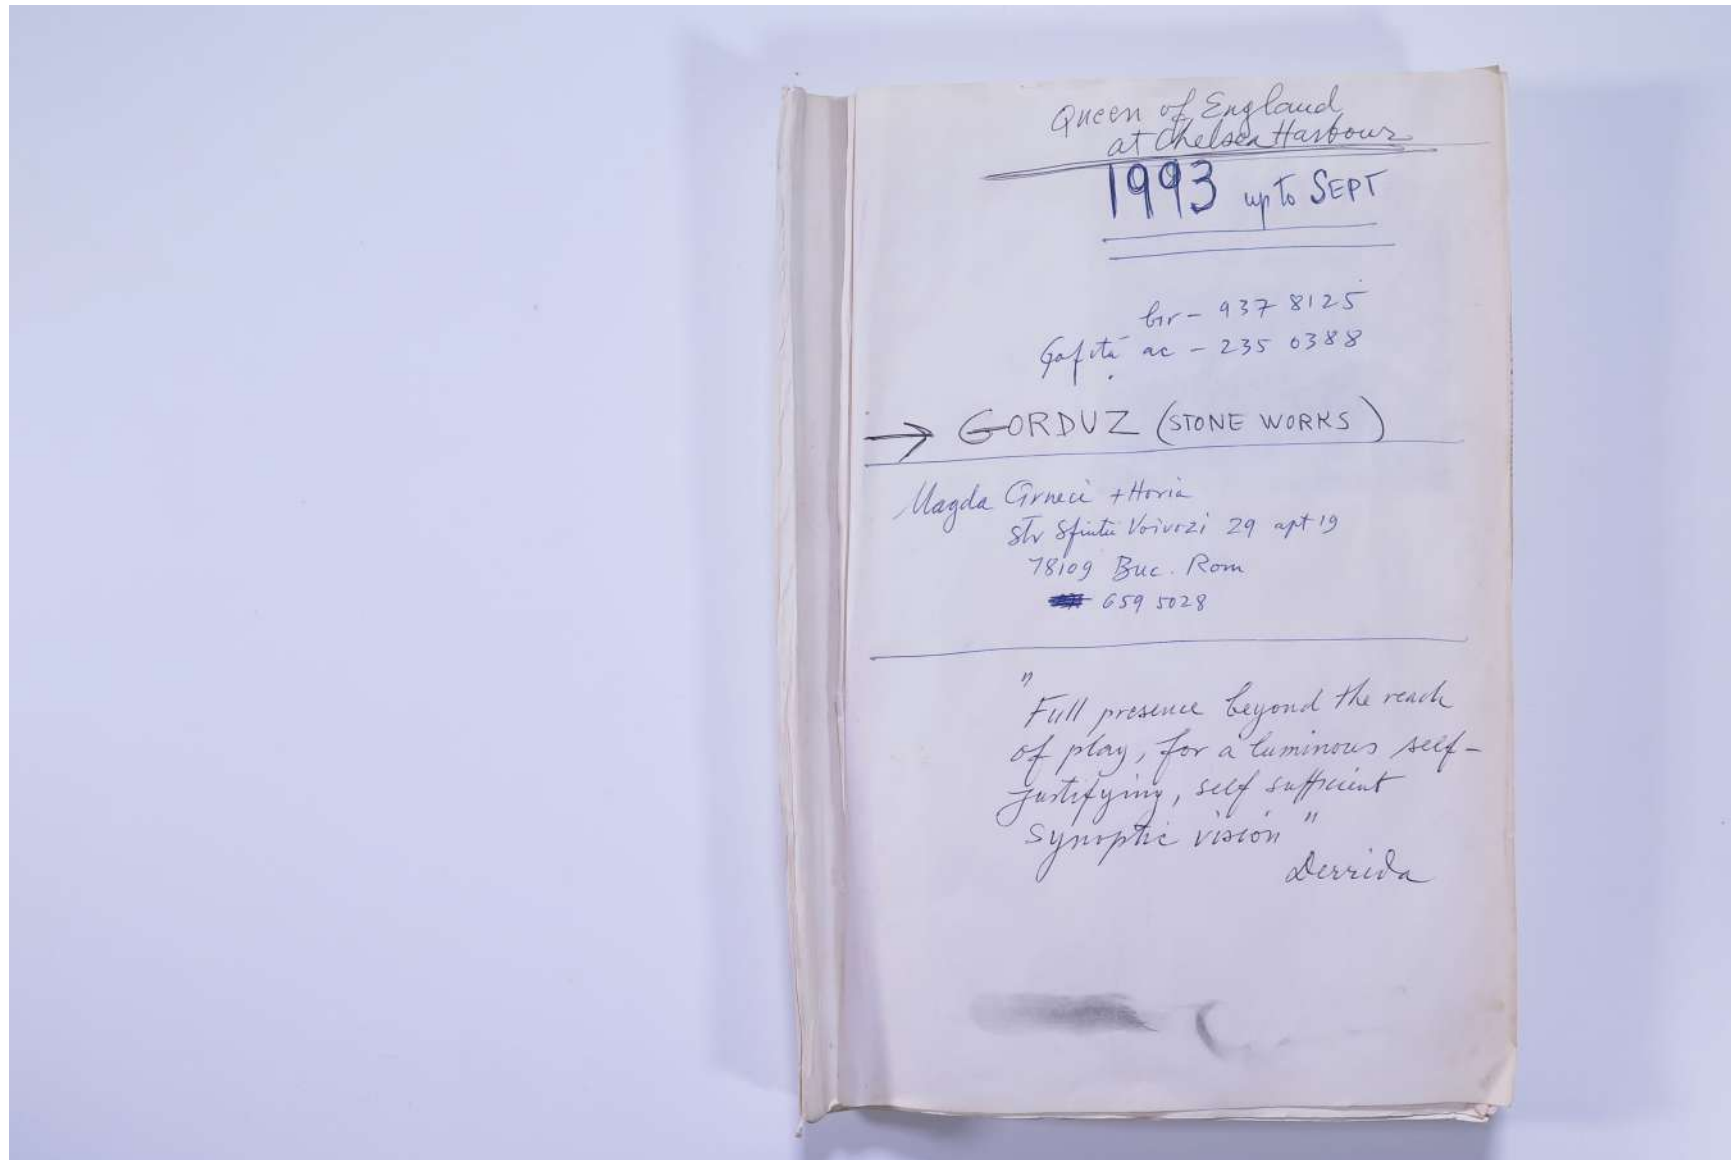 Queen of England
at Chelsea Harbour
1993 up to SEPT
bir - 937 8125
Gafită ac - 235 0388
→ GORDUZ (STONE WORKS)
Magda Cîrneci + Horia
Str Sfinții Voivozi 29 apt 19
78109 Buc. Rom
659 5028
"
Full presence beyond the reach
of play, for a luminous self-
justifying, self sufficient
synoptic vision"
Derrida